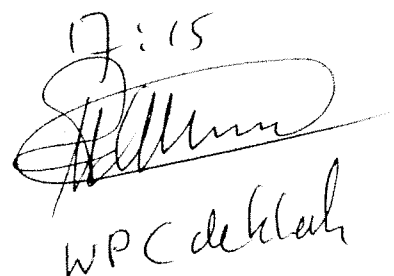 17:15
WPC de Klerk